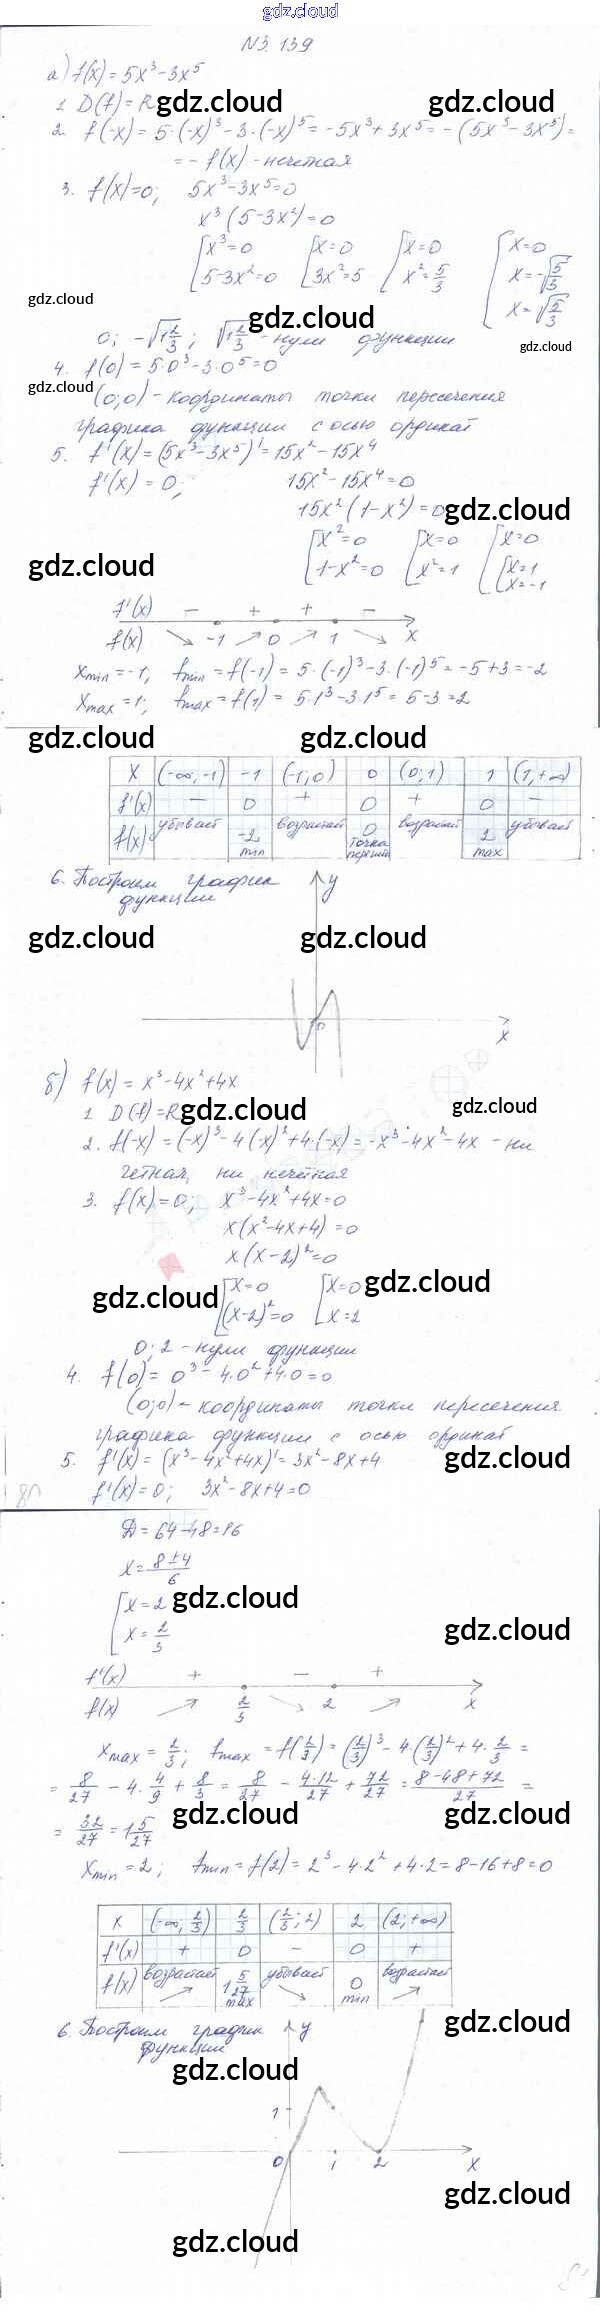 gdz.cloud
№3.139
а) f(x) = 5x³ - 3x⁵
1. D(f) = R gdz.cloud gdz.cloud
2. f(-x) = 5·(-x)³ - 3·(-x)⁵ = -5x³ + 3x⁵ = -(5x³ - 3x⁵) =
= -f(x) - нечетная
3. f(x) = 0; 5x³ - 3x⁵ = 0
x³(5 - 3x²) = 0
[x³ = 0 [x = 0 [x = 0 [x = 0
5 - 3x² = 0 3x² = 5 x² = 5/3 x = -√5/3
x = √5/3
gdz.cloud gdz.cloud
0; -√1 2/3; √1 2/3 - нули функции
gdz.cloud
4. f(0) = 5·0³ - 3·0⁵ = 0
gdz.cloud
(0;0) - координаты точки пересечения
графика функции с осью ординат
5. f'(x) = (5x³ - 3x⁵)' = 15x² - 15x⁴
f'(x) = 0; 15x² - 15x⁴ = 0
15x²(1 - x²) = 0 gdz.cloud
[x² = 0 [x = 0 [x = 0
1 - x² = 0 x² = 1 [x = 1
x = -1
gdz.cloud gdz.cloud
f'(x) - + + -
f(x) -1 0 1 x
xmin = -1, fmin = f(-1) = 5·(-1)³ - 3·(-1)⁵ = -5 + 3 = -2
xmax = 1; fmax = f(1) = 5·1³ - 3·1⁵ = 5 - 3 = 2
gdz.cloud gdz.cloud
x (-∞,-1) -1 (-1,0) 0 (0;1) 1 (1,+∞)
f'(x) - 0 + 0 + 0 -
f(x) убывает -2 min возрастает 0 точка перегиба возрастает 2 max убывает
6. Построим график
функции
y
gdz.cloud gdz.cloud
0
x
б) f(x) = x³ - 4x² + 4x
1. D(f) = R gdz.cloud gdz.cloud
2. f(-x) = (-x)³ - 4(-x)² + 4·(-x) = -x³ - 4x² - 4x - ни
четная, ни нечётная
3. f(x) = 0; x³ - 4x² + 4x = 0
x(x² - 4x + 4) = 0
x(x - 2)² = 0
gdz.cloud [x = 0 [x = 0 gdz.cloud
(x-2)² = 0 x = 2
0; 2 - нули функции
4. f(0) = 0³ - 4·0² + 4·0 = 0
(0;0) - координаты точки пересечения
графика функции с осью ординат
5. f'(x) = (x³ - 4x² + 4x)' = 3x² - 8x + 4
gdz.cloud
f'(x) = 0; 3x² - 8x + 4 = 0
Д = 64 - 48 = 16
x = 8±4/6
[x = 2 gdz.cloud
x = 2/3
gdz.cloud
f'(x) + - +
f(x) 2/3 2 x
xmax = 2/3; fmax = f(2/3) = (2/3)³ - 4·(2/3)² + 4·2/3 =
= 8/27 - 4·4/9 + 8/3 = 8/27 - 4·12/27 + 72/27 = 8-48+72/27 =
gdz.cloud gdz.cloud
= 32/27 = 1 5/27
xmin = 2; fmin = f(2) = 2³ - 4·2² + 4·2 = 8 - 16 + 8 = 0
x (-∞, 2/3) 2/3 (2/3; 2) 2 (2; +∞)
f'(x) + 0 - 0 +
f(x) возрастает 1 5/27 max убывает 0 min возрастает
gdz.cloud
6. Построим график
функции
y
gdz.cloud gdz.cloud
1
0 1 2 x
gdz.cloud
gdz.cloud